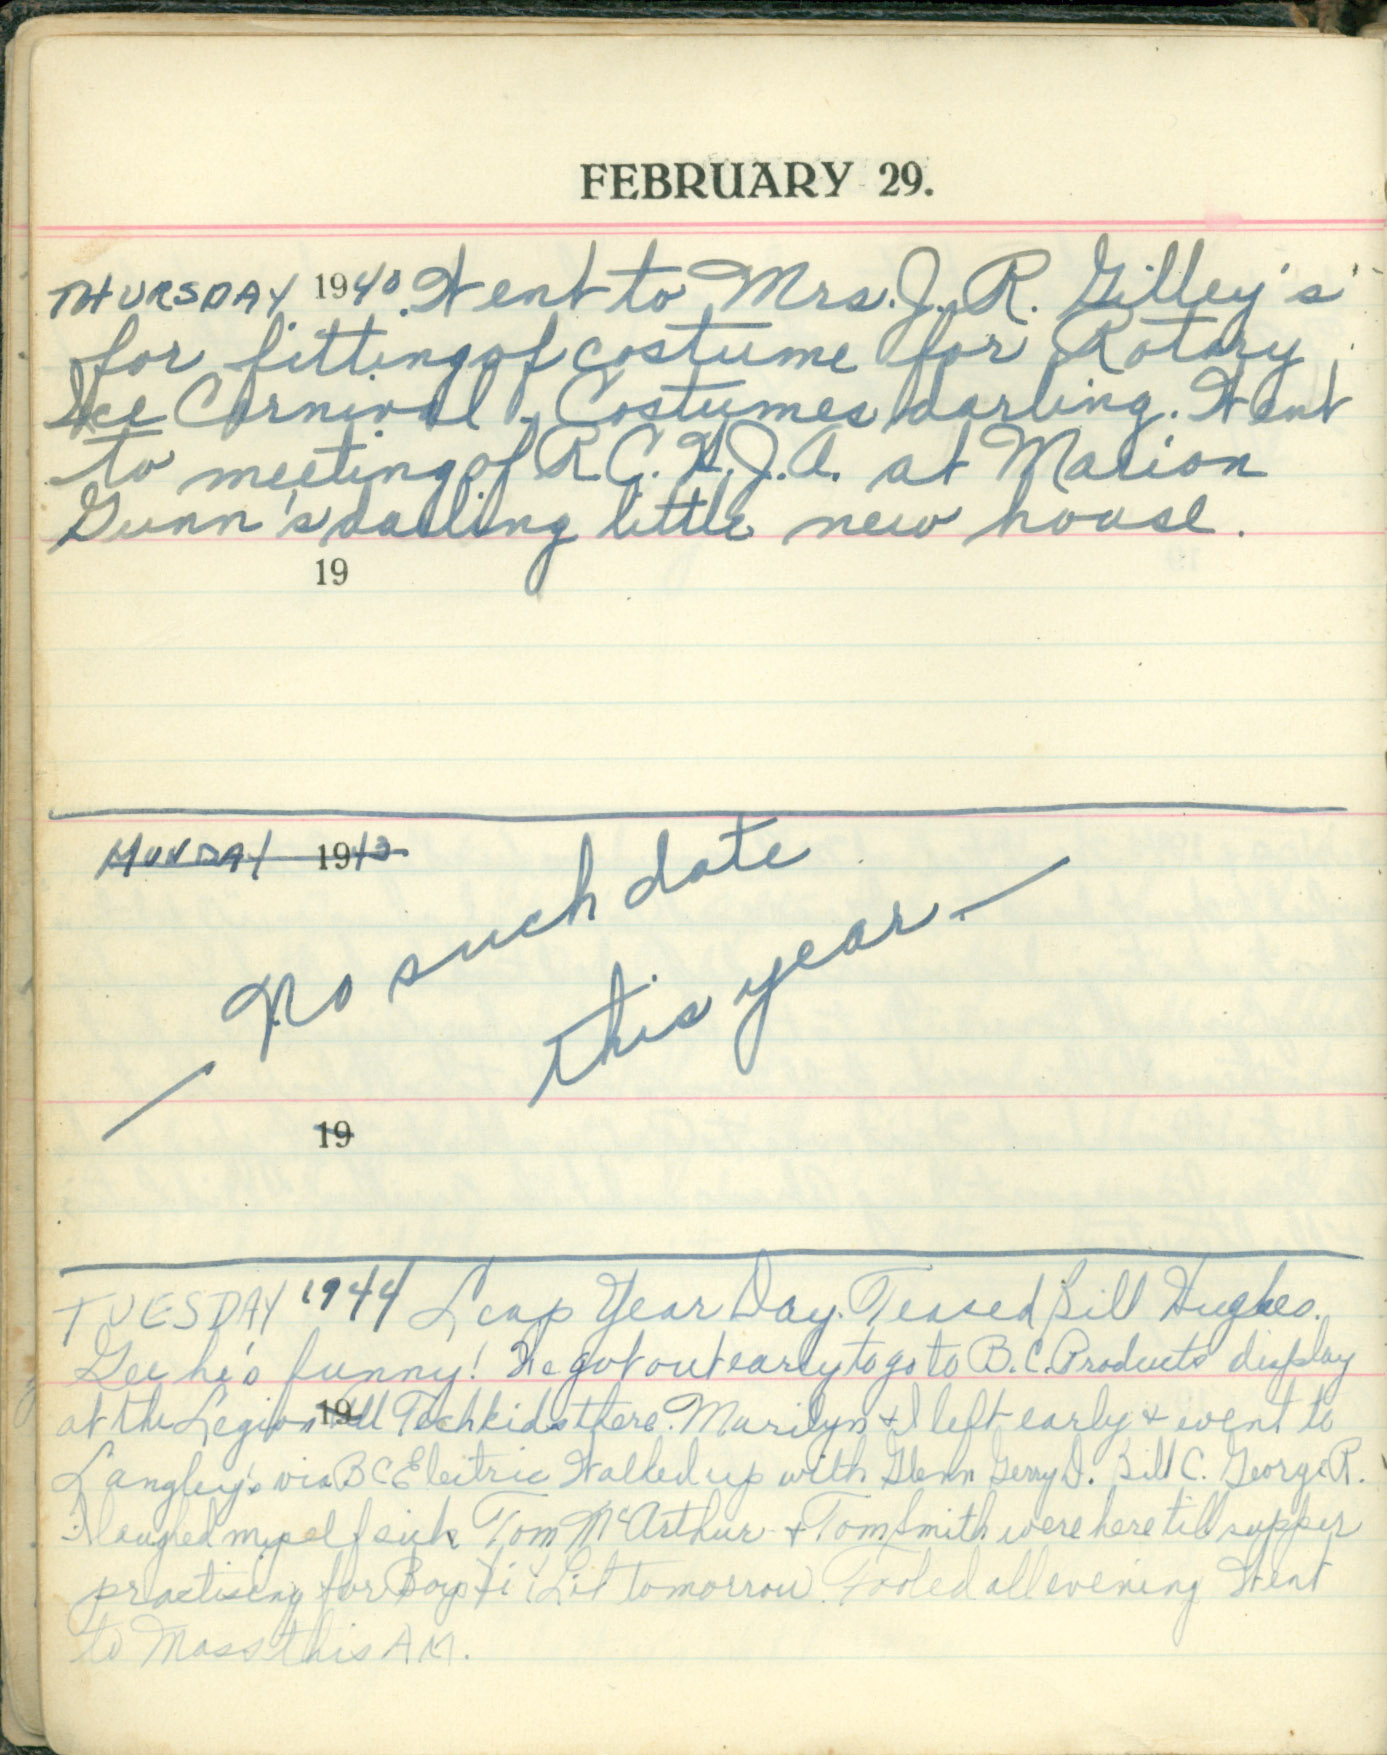 FEBRUARY 29.
THURSDAY 1940. Went to Mrs. J. R. Gilley's
for fitting of costume for Rotary
Ice Carnival. Costumes darling. Went
to meeting of R.C.H.J.A. at Marion
Gunn's darling little new house.
19
MONDAY 1943
No such date
this year —
19
TUESDAY 1944 Leap Year Day. Teased Bill Hughes.
Gee he's funny! We got out early to go to B.C. Products display
at the Legion 19 All Tech kids there. Marilyn & I left early & went to
Langley's via BC Electric Walked up with Glenn Gerry D. Bill C. George R.
I laughed myself sick Tom McArthur & Tom Smith were here till supper
practising for Boys Hi Lit tomorrow. Fooled all evening Went
to Mass this A.M.